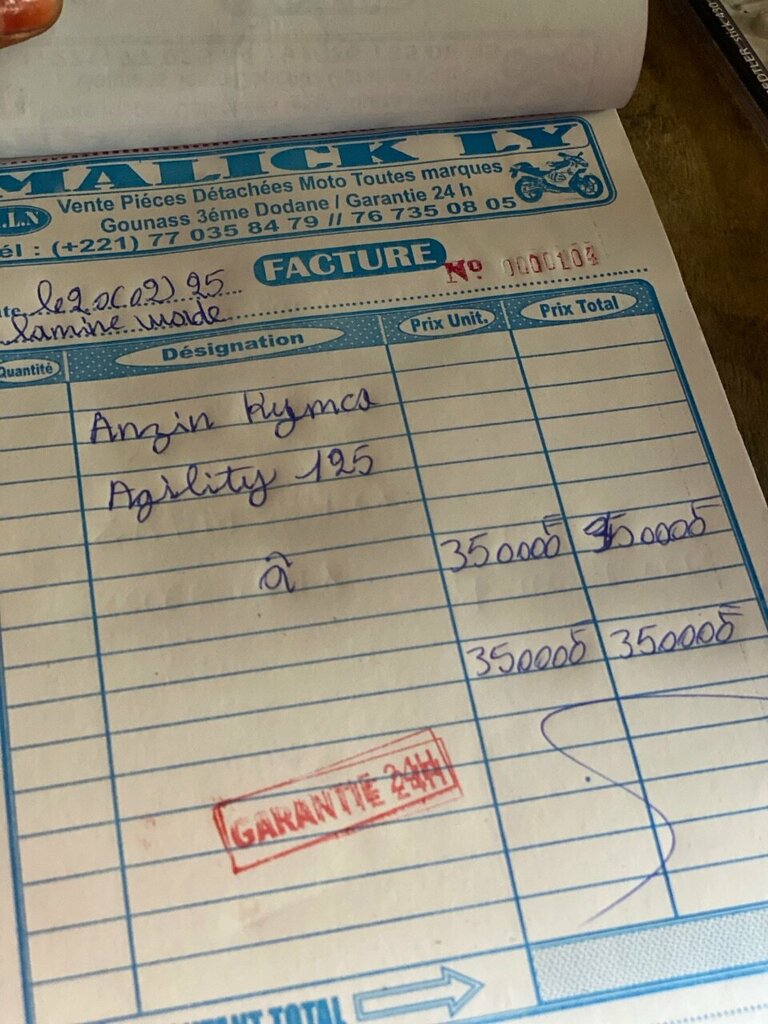 MALICK LY
Vente Piéces Détachées Moto Toutes marques
Gounass 3éme Dodane / Garantie 24 h
él : (+221) 77 035 84 79 // 76 735 08 05
FACTURE Nº 0000104
le 20(02) 25
lamine
Quantité Désignation Prix Unit. Prix Total
Anzin Kymco
Agility 125
à 350000F 350000F
350000F 350000F
GARANTIE 24H
TOTAL